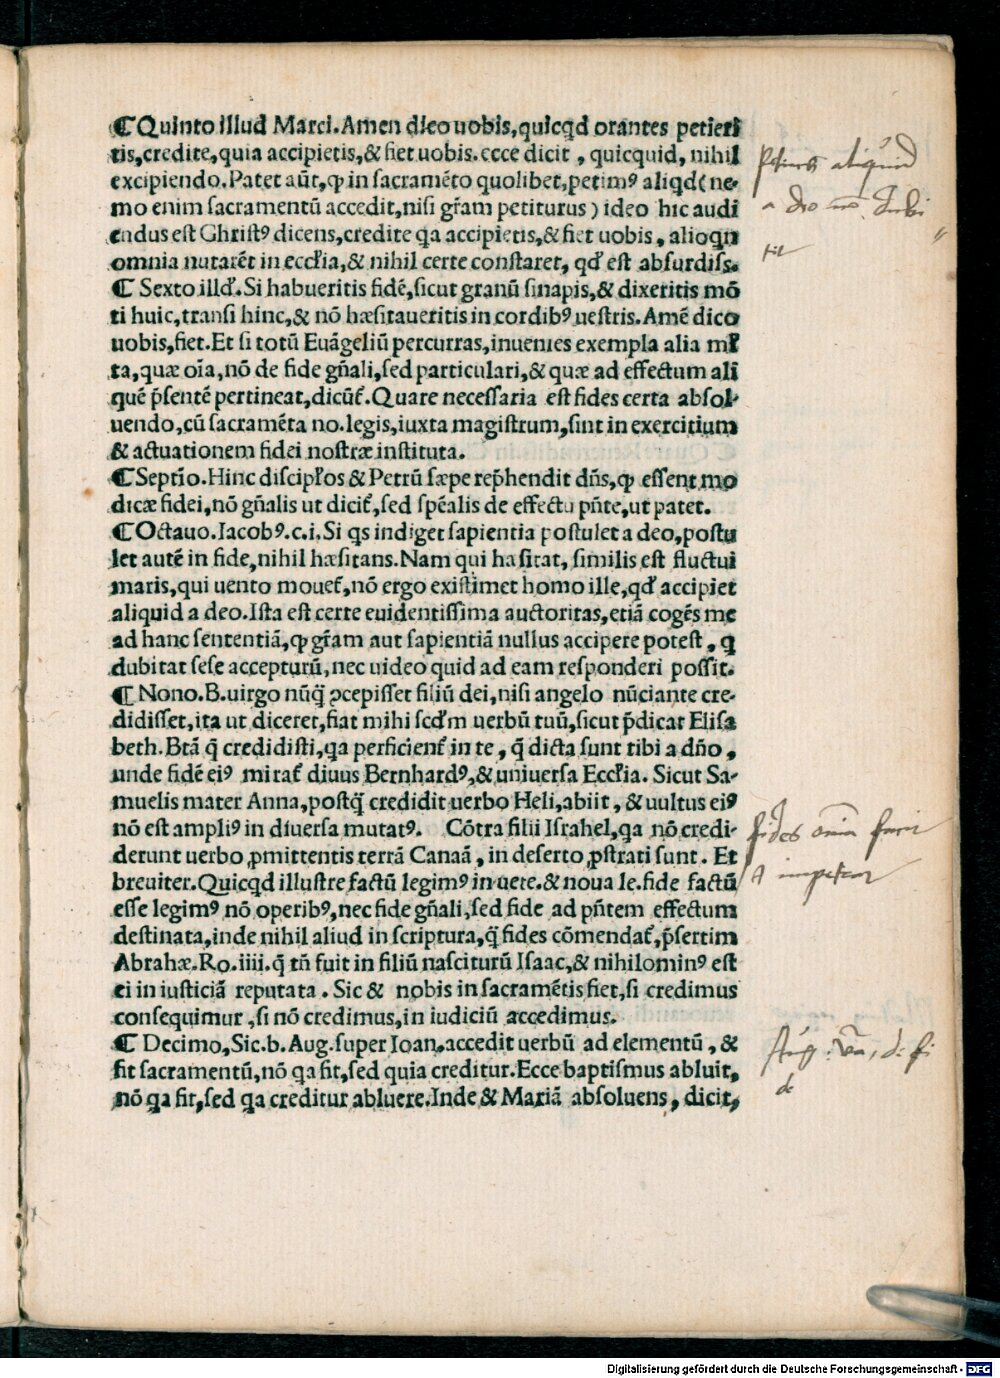 ¶ Quinto illud Marci. Amen dico uobis, quicqd orantes petieri
tis, credite, quia accipietis, & fiet uobis. ecce dicit , quicquid, nihil
excipiendo. Patet aũt, ꝙ in sacramẽto quolibet, petimꝰ aliqd( ne-
mo enim sacramentũ accedit, nisi gr̃am petiturus ) ideo hic audi
endus est Christꝰ dicens, credite qa accipietis, & fiet uobis , alioqn
omnia nutarẽt in eccl̃ia, & nihil certe constaret, qd̃ est absurdiss.
¶ Sexto illd̃. Si habueritis fidẽ, sicut granũ sinapis, & dixeritis mõ
ti huic, transi hinc, & nõ hæsitaueritis in cordibꝰ uestris. Amẽ dico
uobis, fiet. Et si totũ Euãgeliũ percurras, inuenies exempla alia ml̃
ta, quæ oĩa, nõ de fide gñali, sed particulari, & quæ ad effectum ali
quẽ p̃sentẽ pertineat, dicũt̃. Quare necessaria est fides certa absol-
uendo, cũ sacramẽta no. legis, iuxta magistrum, sint in exercitium
& actuationem fidei nostræ instituta.
¶ Septĩo. Hinc discipl̃os & Petrũ sæpe rep̃hendit dñs, ꝙ essent mo
dicæ fidei, nõ gñalis ut dicit̃, sed spẽalis de effectu pñte, ut patet.
¶ Octauo. Iacobꝰ. c. i. Si qs indiget sapientia postulet a deo, postu
let autẽ in fide, nihil hæsitans. Nam qui hæsitat, similis est fluctui
maris, qui uento mouet̃, nõ ergo existimet homo ille, qd̃ accipiet
aliquid a deo. Ista est certe euidentissima auctoritas, etiã cogẽs me
ad hanc sententiã, ꝙ gr̃am aut sapientiã nullus accipere potest , q
dubitat sese accepturũ, nec uideo quid ad eam responderi possit.
¶ Nono. B. uirgo nũq̃ ꝯcepisset filiũ dei, nisi angelo nũciante cre-
didisset, ita ut diceret, fiat mihi scd̃m uerbũ tuũ, sicut p̃dicat Elisa
beth. Btã q̃ credidisti, qa perficient̃ in te , q̃ dicta sunt tibi a dño ,
unde fidẽ eiꝰ mirat̃ diuus Bernhardꝰ, & uniuersa Eccl̃ia. Sicut Sa-
muelis mater Anna, postq̃ credidit uerbo Heli, abiit , & uultus eiꝰ
nõ est ampliꝰ in diuersa mutatꝰ. Cõtra filii Israhel, qa nõ credi-
derunt uerbo ꝓmittentis terrã Canaã , in deserto ꝓstrati sunt. Et
breuiter. Quicqd illustre factũ legimꝰ in uete. & noua le. fide factũ
esse legimꝰ nõ operibꝰ, nec fide gñali, sed fide ad pñtem effectum
destinata, inde nihil aliud in scriptura, q̃ fides cõmendat̃, p̃sertim
Abrahæ. Ro. iiii. q̃ tñ fuit in filiũ nasciturũ Isaac, & nihilominꝰ est
ei in iusticiã reputata . Sic & nobis in sacramẽtis fiet, si credimus
consequimur, si nõ credimus, in iudiciũ accedimus.
¶ Decimo, Sic. b. Aug. super Ioan. accedit uerbũ ad elementũ , &
fit sacramentũ, nõ qa fit, sed quia creditur. Ecce baptismus abluit,
nõ qa fit, sed qa creditur abluere. Inde & Mariã absoluens , dicit,
aliquid
a deo
fides omnia
Aug:
Digitalisierung gefördert durch die Deutsche Forschungsgemeinschaft - DFG